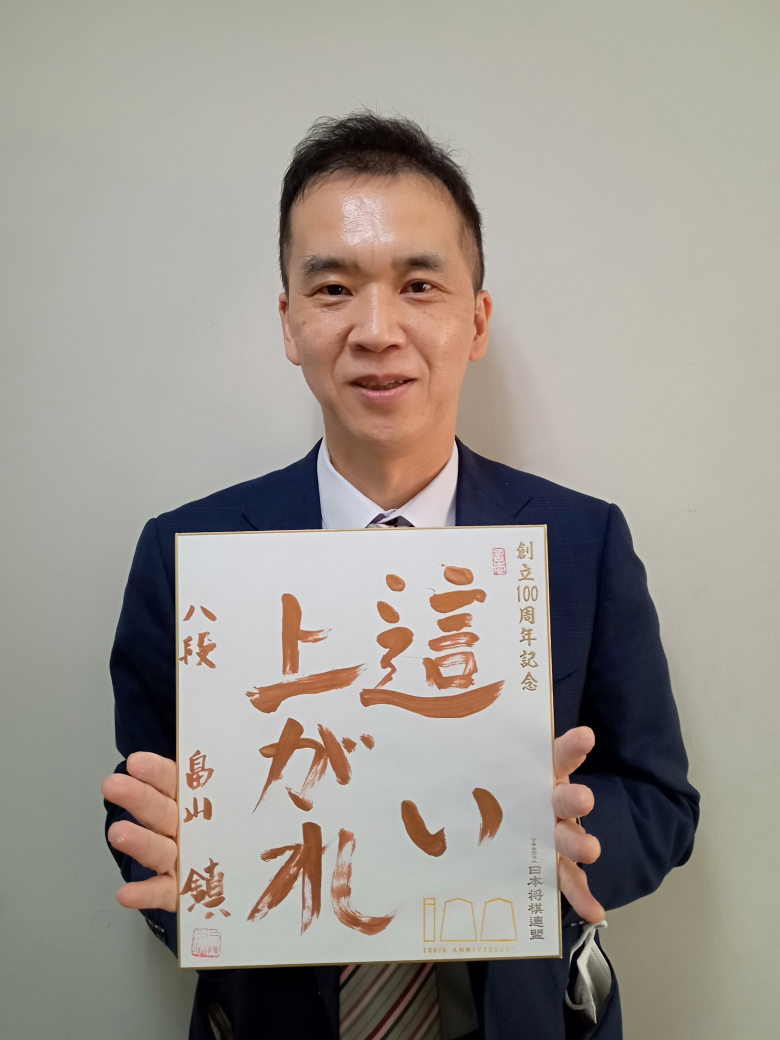 創立100周年記念
這い
上がれ
八段 畠山 鎮
日本将棋連盟
100th ANNIVERSARY